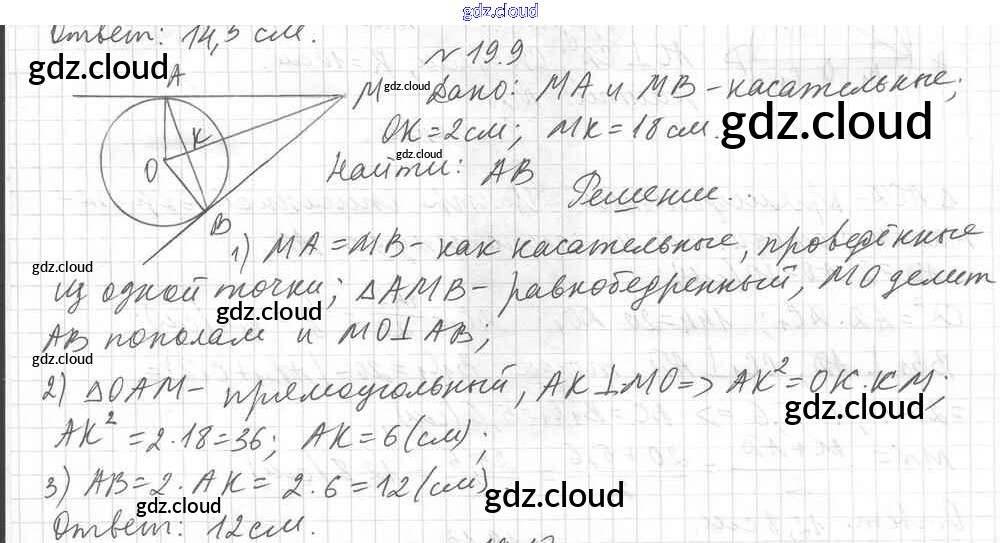 gdz.cloud
Ответ: 14,5 см.
gdz.cloud
№ 19.9
A
M
gdz.cloud
Дано: MA и MB - касательные;
K
OK = 2 см; MK = 18 см.
gdz.cloud
gdz.cloud
O
Найти: AB
Решение.
B
1) MA = MB - как касательные, проведённые
gdz.cloud
из одной точки; △AMB - равнобедренный, MO делит
gdz.cloud
AB пополам и MO⊥AB;
gdz.cloud
2) △OAM - прямоугольный, AK⊥MO => AK² = OK·KM;
gdz.cloud
AK² = 2·18 = 36; AK = 6 (см);
3) AB = 2·AK = 2·6 = 12 (см)
gdz.cloud
gdz.cloud
Ответ: 12 см.